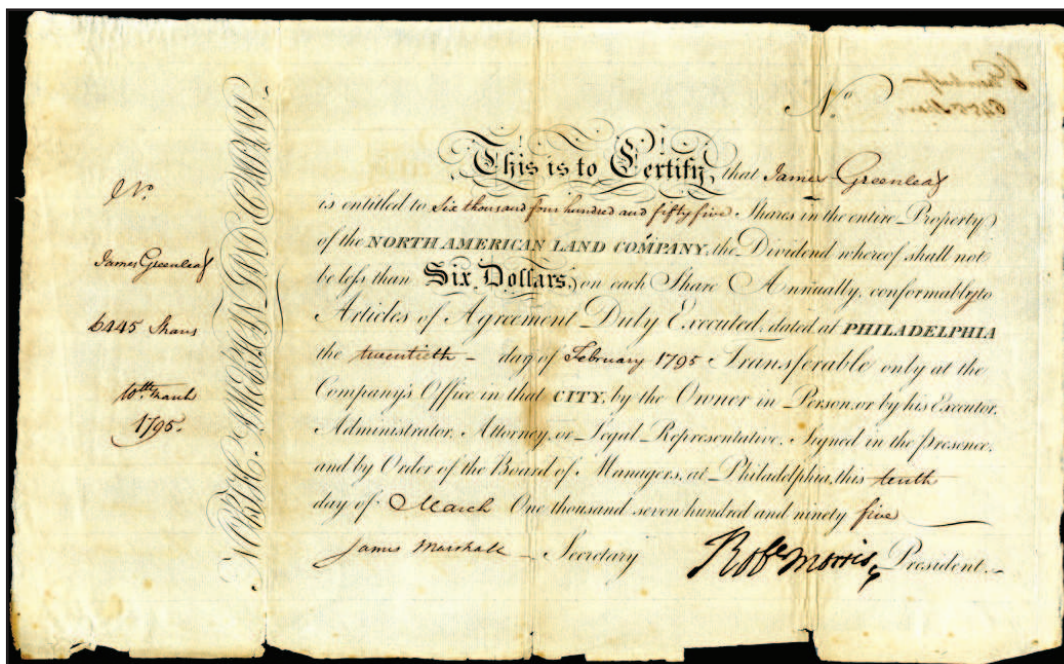 No.
This is to Certify, that James Greenleaf
is entitled to Six thousand four hundred and fifty five Shares in the entire Property
of the NORTH AMERICAN LAND COMPANY, the Dividend whereof shall not
be less than Six Dollars, on each Share Annually, conformably to
Articles of Agreement Duly Executed, dated at PHILADELPHIA
the twentieth - day of February 1795 Transferable only at the
Company's Office in that CITY, by the Owner in Person, or by his Executor,
Administrator, Attorney, or Legal Representative. Signed in the presence,
and by Order of the Board of Managers, at Philadelphia, this tenth
day of March One thousand seven hundred and ninety five
James Marshall - Secretary Robt Morris, President.
No.
James Greenleaf
6445 Shares
10th March
1795.
NORTH AMERICAN LAND COMPANY.